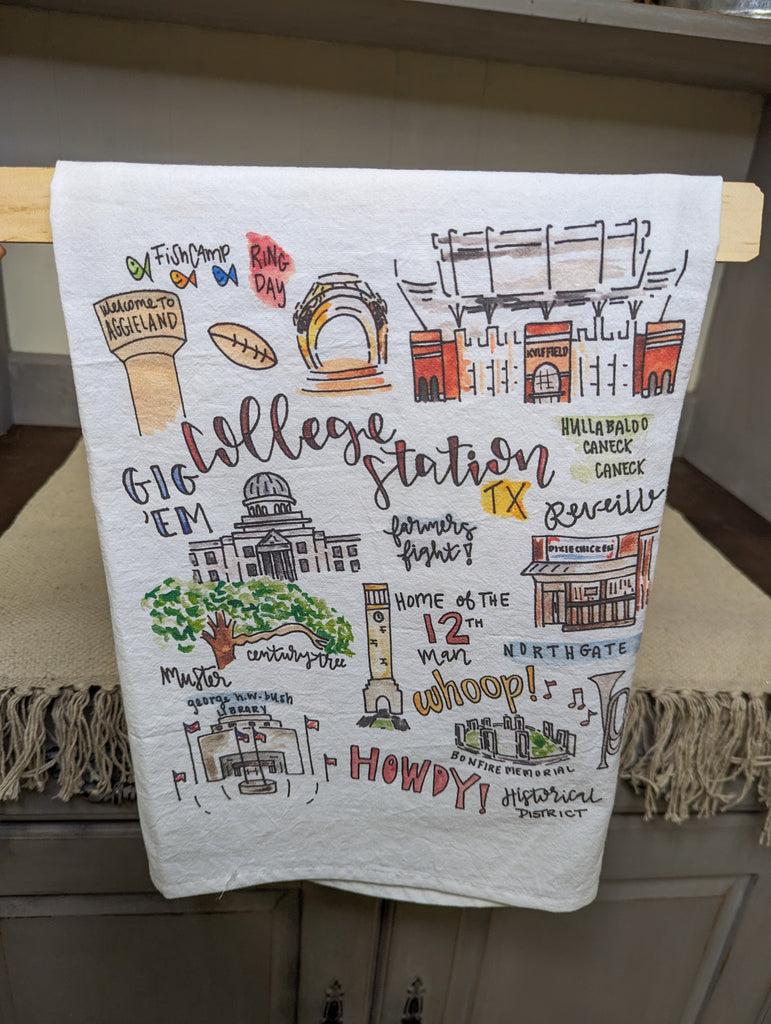 FishCAMP
RING
DAY
Welcome TO
AGGIELAND
KYLE FIELD
College
Station
TX
HULLABALOO
CANECK
CANECK
GIG
'EM
Reveille
farmers
fight!
DIXIE CHICKEN
HOME of THE
12TH
Man
NORTHGATE
century tree
Muster
whoop!
george h.w. bush
LIBRARY
BONFIRE MEMORIAL
HOWDY!
Historical
DISTRICT